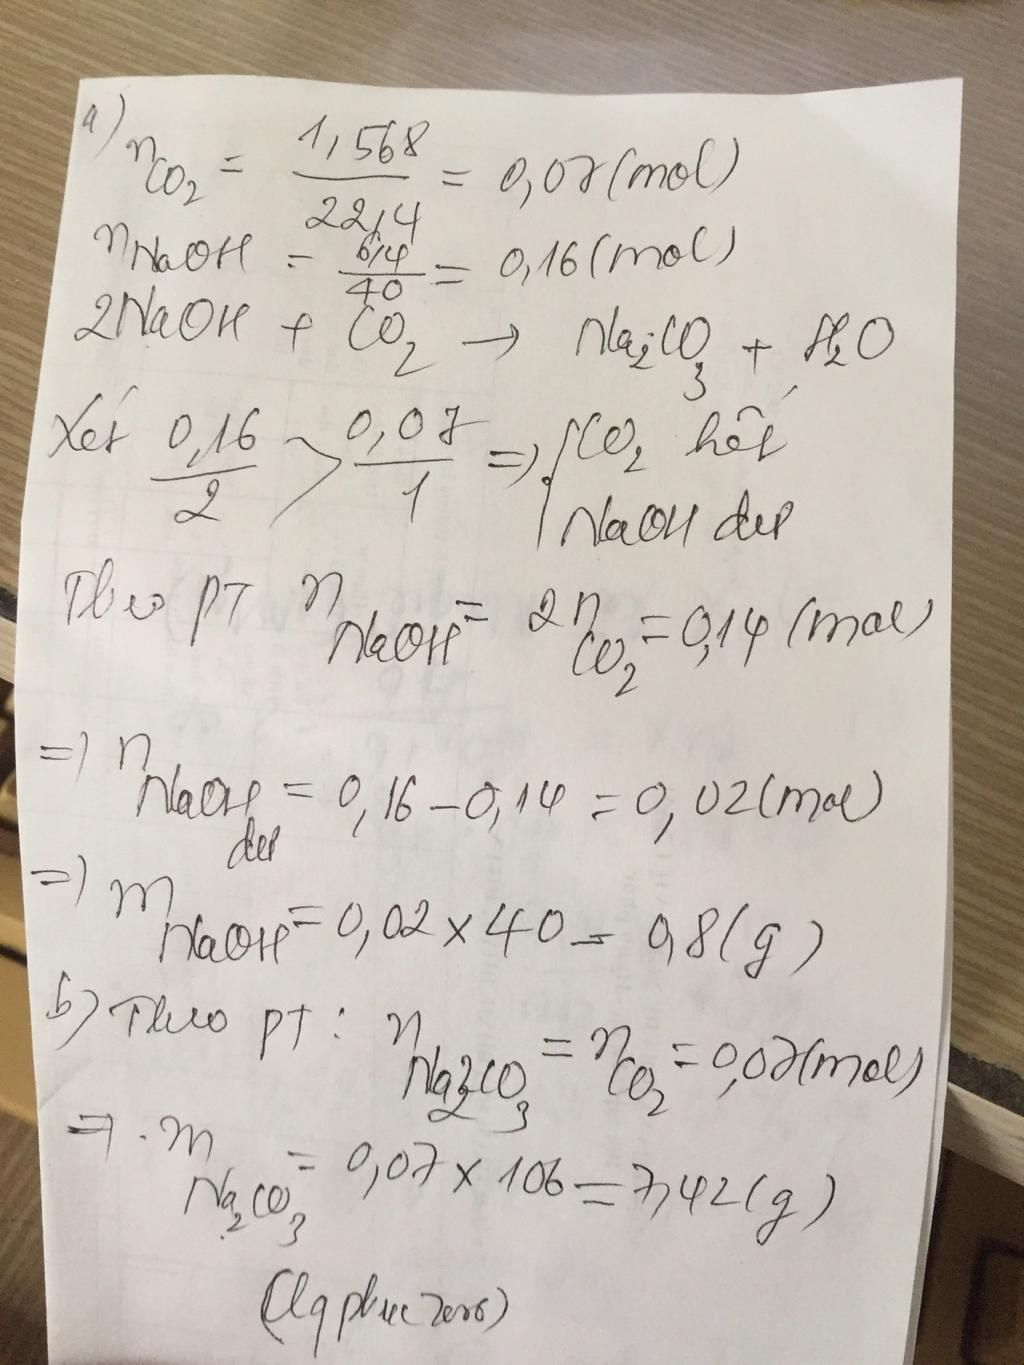 a) nCO2 = 1,568/22,4 = 0,07 (mol)
nNaOH = 6,4/40 = 0,16 (mol)
2NaOH + CO2 → Na2CO3 + H2O
Xét 0,16/2 > 0,07/1 => { CO2 hết
NaOH dư
Theo PT nNaOH = 2nCO2 = 0,14 (mol)
=> nNaOH dư = 0,16 - 0,14 = 0,02 (mol)
=> mNaOH = 0,02 x 40 = 0,8 (g)
b) Theo PT : nNa2CO3 = nCO2 = 0,07 (mol)
=> mNa2CO3 = 0,07 x 106 = 7,42 (g)